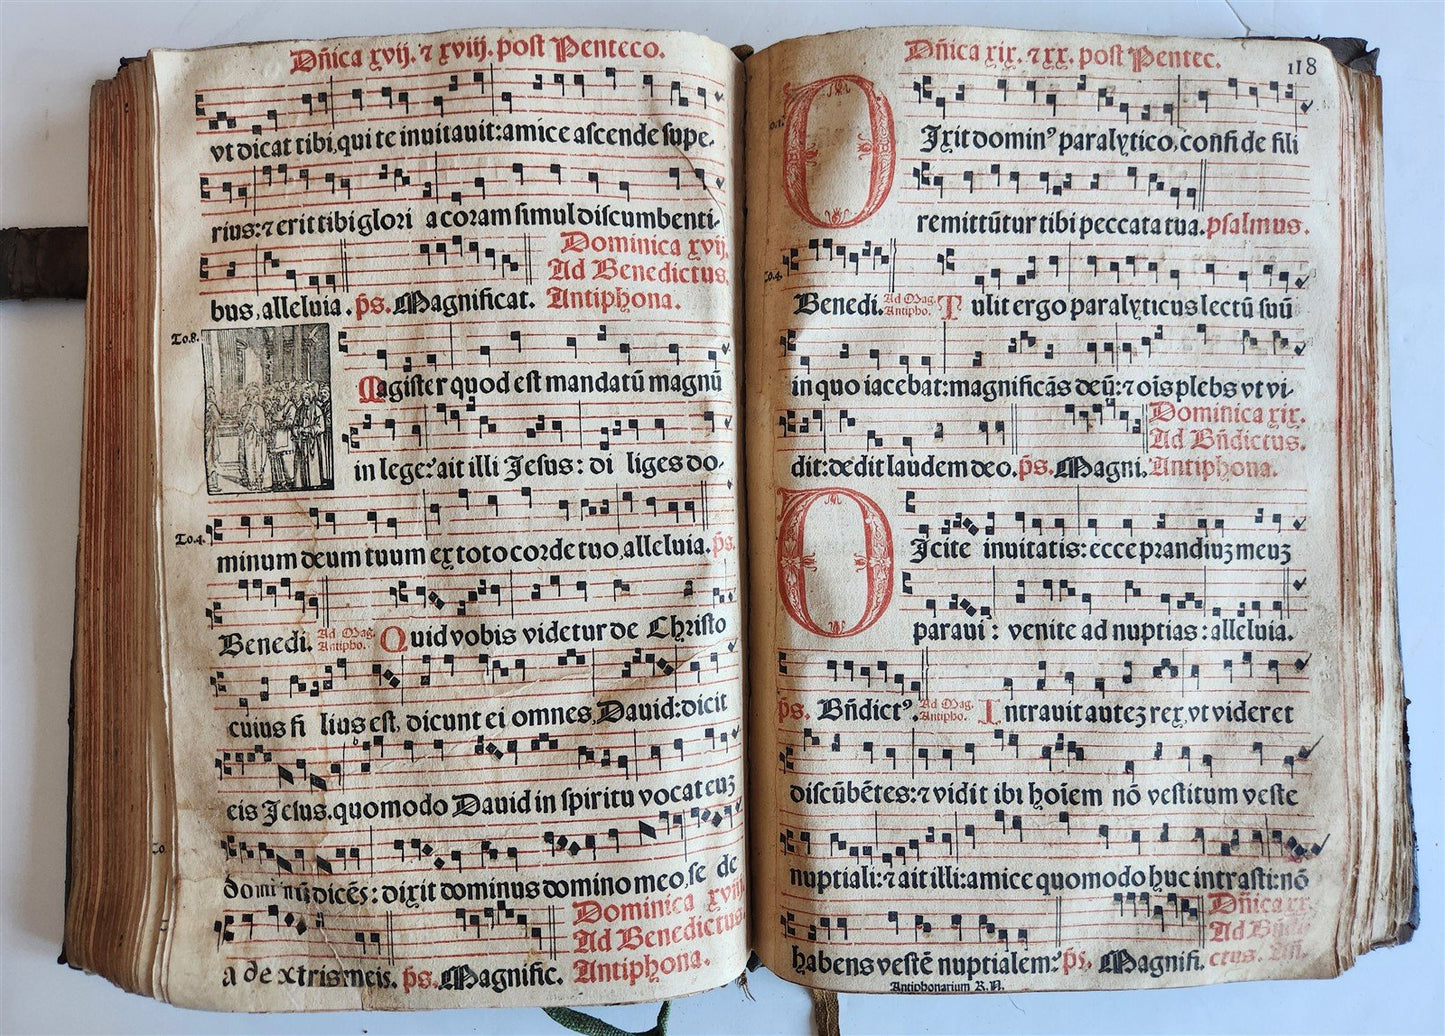 Dñica xvij. ⁊ xviij. post Penteco.
vt dicat tibi, qui te inuitauit: amice ascende supe-
rius: ⁊ erit tibi glori a coram simul discumbenti-
Dominica xvij.
Ad Benedictus.
bus, alleluia. p̃s. Magnificat. Antiphona.
To.8.
Magister quod est mandatū magnū
in lege? ait illi Jesus: di liges do-
To.4.
minum deum tuum ex toto corde tuo, alleluia. p̃s.
Benedi. Ad Mag. Antipho. Quid vobis videtur de Christo
cuius fi lius est, dicunt ei omnes, Dauid: dicit
eis Jesus. quomodo Dauid in spiritu vocat euʒ
To
domi nū dicēs: dixit dominus domino meo, se de
Dominica xviij.
Ad Benedictus.
a de xtris meis. p̃s. Magnific. Antiphona.
Dñica xix. ⁊ xx. post Pentec.
118
To.1.
DIxit dominꝰ paralytico, confide fili
remittūtur tibi peccata tua. psalmus.
To.4.
Benedi. Ad Mag. Antipho. Tulit ergo paralyticus lectū suū
in quo iacebat: magnificās deū: ⁊ ois plebs vt vi-
Dominica xix.
Ad Bñdictus.
dit: dedit laudem deo. p̃s. Magni. Antiphona.
DIcite inuitatis: ecce prandiuʒ meuʒ
paraui: venite ad nuptias: alleluia.
p̃s. Bñdictꝰ. Ad Mag. Antipho. Intrauit auteʒ rex, vt videret
discūbētes: ⁊ vidit ibi hoiem nō vestitum veste
nuptiali: ⁊ ait illi: amice quomodo huc intrasti: nō
Dñica xx.
Ad Bñdi
habens vestē nuptialem? p̃s. Magnifi. ctus. Añ.
Antiphonarium R.N.